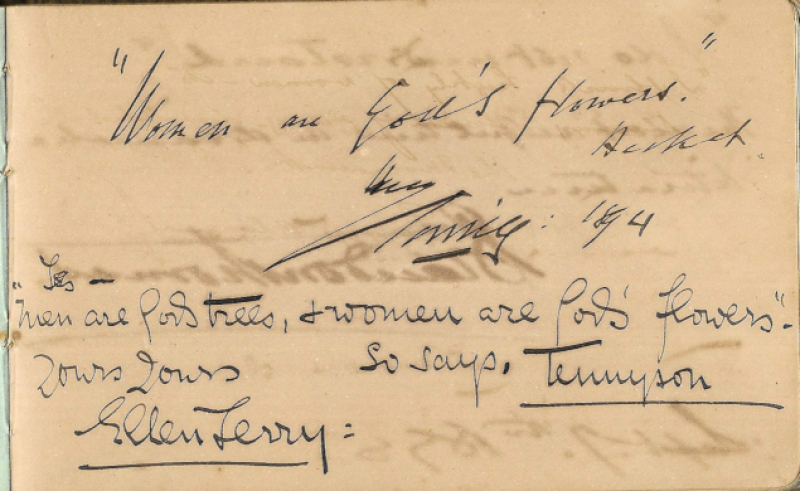 "Women are God's flowers."
Becket.
Irving: 1894
Yes —
"Men are God's trees, & women are God's flowers" -
so says, Tennyson
Yours Yours
Ellen Terry: